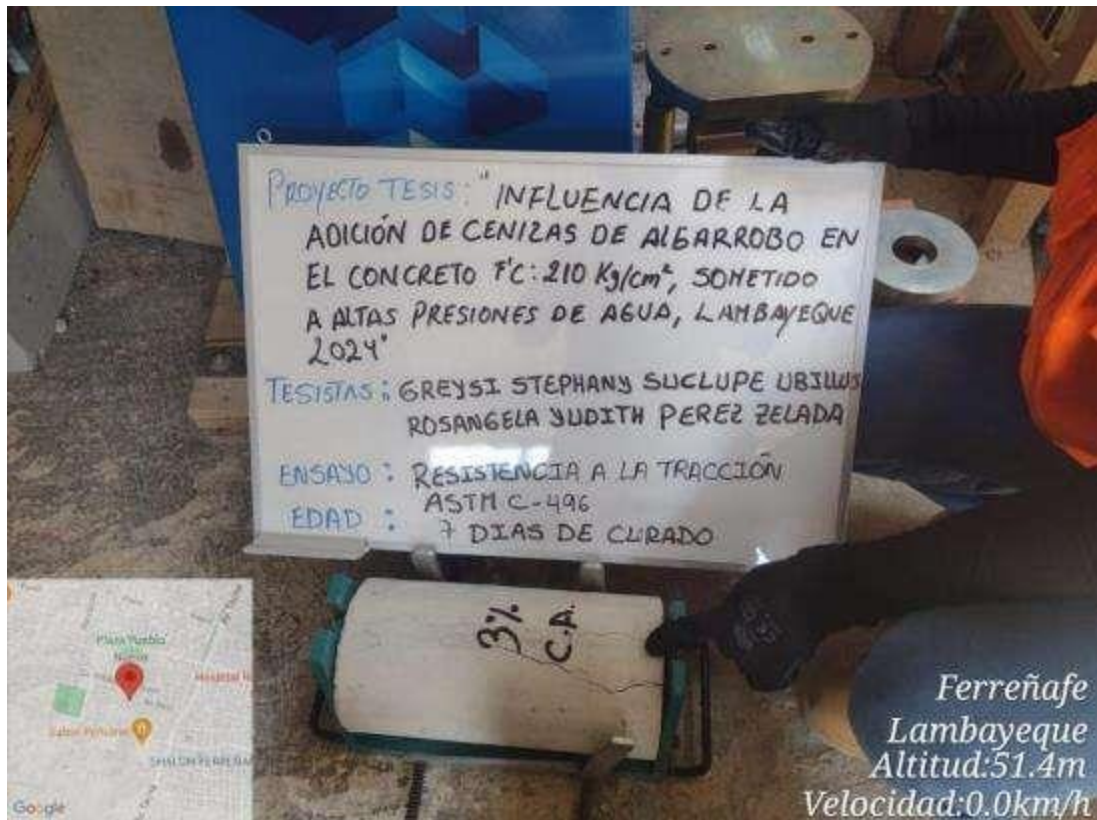 PROYECTO TESIS: "INFLUENCIA DE LA
ADICIÓN DE CENIZAS DE ALGARROBO EN
EL CONCRETO F'C: 210 Kg/cm², SOMETIDO
A ALTAS PRESIONES DE AGUA, LAMBAYEQUE
2024"
TESISTAS: GREYSI STEPHANY SUCLUPE UBILLUS
ROSANGELA YUDITH PEREZ ZELADA
ENSAYO: RESISTENCIA A LA TRACCIÓN
ASTM C-496
EDAD: 7 DIAS DE CURADO
3%
C.A.
Plaza Pueblo
Nuevo
Hospital
Google
Ferreñafe
Lambayeque
Altitud:51.4m
Velocidad:0.0km/h